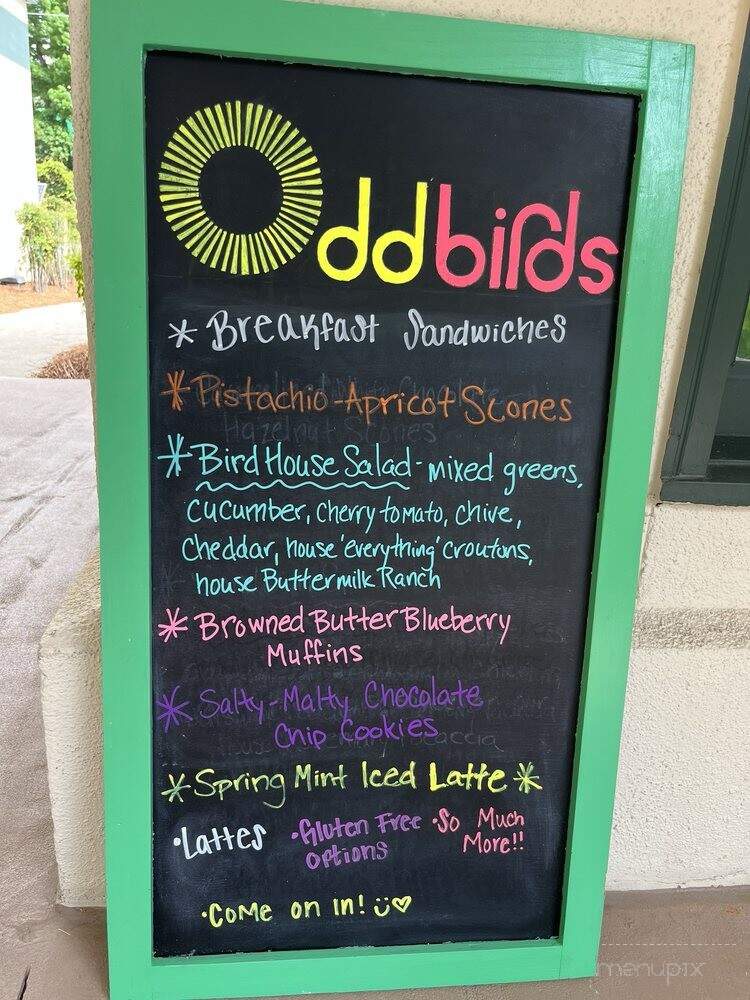 Oddbirds
* Breakfast Sandwiches
* Pistachio-Apricot Scones
Hazelnut Scones
* Bird House Salad - mixed greens,
cucumber, cherry tomato, chive,
cheddar, house 'everything' croutons,
house Buttermilk Ranch
* Browned Butter Blueberry
Muffins
* Salty-Malty Chocolate
Chip Cookies
* Spring Mint Iced Latte *
•Lattes •Gluten Free •So Much
options More!!
•Come on in! ü♡
menupix